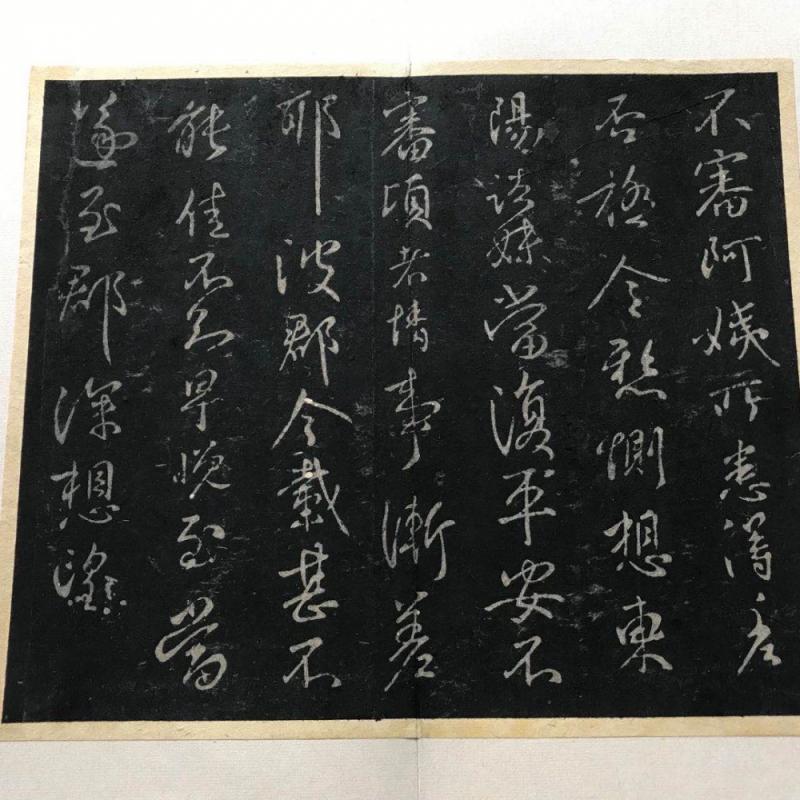 不審阿姨所患得差
否極令惻想東
陽諸妹當復平安不
審頃者情事漸差
耶彼郡今載甚不
能佳不知早晚至當
遂至郡深想望